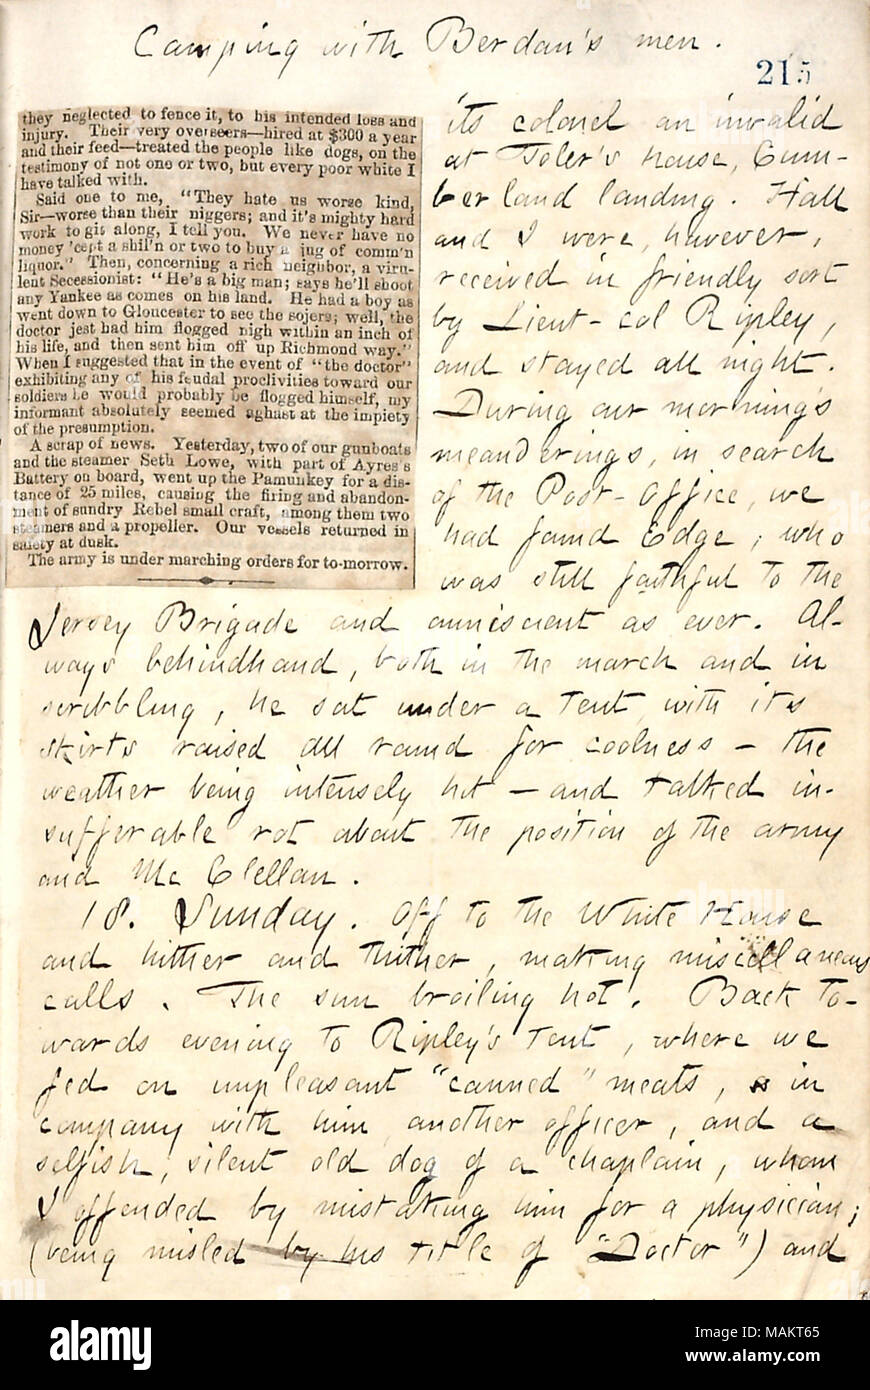 Camping with Berdan's men.
215
they neglected to fence it, to his intended loss and
injury. Their very overseers—hired at $300 a year
and their feed—treated the people like dogs, on the
testimony of not one or two, but every poor white I
have talked with.
Said one to me, "They hate us worse kind,
Sir—worse than their niggers; and it's mighty hard
work to git along, I tell you. We never have no
money 'cept a shil'n or two to buy a jug of comm'n
liquor." Then, concerning a rich neighbor, a viru-
lent Secessionist: "He's a big man; says he'll shoot
any Yankee as comes on his land. He had a boy as
went down to Gloucester to see the sojers; well, the
doctor jest had him flogged nigh within an inch of
his life, and then sent him off up Richmond way."
When I suggested that in the event of "the doctor"
exhibiting any of his feudal proclivities toward our
soldiers he would probably be flogged himself, my
informant absolutely seemed aghast at the impiety
of the presumption.
A scrap of news. Yesterday, two of our gunboats
and the steamer Seth Lowe, with part of Ayres's
Battery on board, went up the Pamunkey for a dis-
tance of 25 miles, causing the firing and abandon-
ment of sundry Rebel small craft, among them two
steamers and a propeller. Our vessels returned in
safety at dusk.
The army is under marching orders for to-morrow.
its colonel an invalid
at Toler's house, Cum-
berland landing. Hall
and I were, however,
received in friendly sort
by Lieut-col Ripley,
and stayed all night.
During our morning's
meanderings, in search
of the Post-Office, we
had found Edge, who
was still faithful to the
Jersey Brigade and omniscient as ever. Al-
ways behindhand, both in the march and in
scribbling, he sat under a tent with its
skirts raised all round for coolness - the
weather being intensely hot - and talked in-
sufferable rot about the position of the army
and Mc Clellan.
18. Sunday. Off to the White House
and hither and thither, making miscellaneous
calls. The sun broiling hot. Back to-
wards evening to Ripley's tent, where we
fed on unpleasant "canned" meats, in
company with him, another officer, and a
selfish, silent old dog of a chaplain, whom
I offended by mistaking him for a physician;
(being misled by his title of "Doctor") and
alamy
Image ID: MAKT65
www.alamy.com